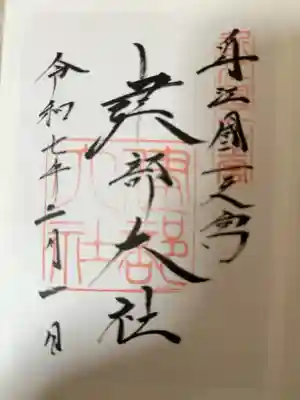 近江國一之宮
建部大社
令和七年二月一日